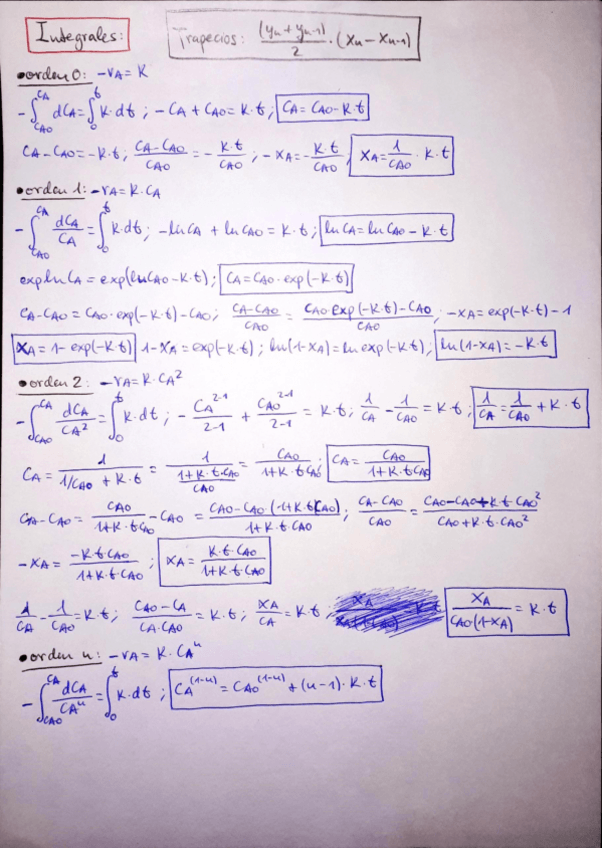 Integrales:
Trapecios: (yn + yn-1)/2 · (xn - xn-1)
• orden 0: -rA = K
-∫_CA0^CA dCA = ∫_0^t K·dt ; -CA + CAO = K·t ; CA = CAO - K·t
CA - CAO = -K·t ; (CA - CAO)/CAO = -K·t/CAO ; -XA = -K·t/CAO ; XA = 1/CAO · K·t
• orden 1: -rA = K·CA
-∫_CAO^CA dCA/CA = ∫_0^t K·dt ; -ln CA + ln CAO = K·t ; ln CA = ln CAO - K·t
exp ln CA = exp(ln CAO - K·t) ; CA = CAO·exp(-K·t)
CA - CAO = CAO·exp(-K·t) - CAO ; (CA - CAO)/CAO = (CAO·exp(-K·t) - CAO)/CAO ; -XA = exp(-K·t) - 1
XA = 1 - exp(-K·t) 1 - XA = exp(-K·t) ; ln(1-XA) = ln exp(-K·t) ; ln(1-XA) = -K·t
• orden 2: -rA = K·CA²
-∫_CAO^CA dCA/CA² = ∫_0^t K·dt ; -CA^(2-1)/(2-1) + CAO^(2-1)/(2-1) = K·t ; 1/CA - 1/CAO = K·t ; 1/CA = 1/CAO + K·t
CA = 1/(1/CAO + K·t) = 1/((1+K·t·CAO)/CAO) = CAO/(1+K·t·CAO) ; CA = CAO/(1+K·t·CAO)
CA - CAO = CAO/(1+K·t·CAO) - CAO = (CAO - CAO·(1+K·t·CAO))/(1+K·t·CAO) ; (CA - CAO)/CAO = (CAO - CAO + K·t·CAO²)/(CAO + K·t·CAO²)
-XA = -K·t·CAO/(1+K·t·CAO) ; XA = K·t·CAO/(1+K·t·CAO)
1/CA - 1/CAO = K·t ; (CAO - CA)/(CA·CAO) = K·t ; XA/CA = K·t XA/(CAO(1-XA)) = K·t
• orden n: -rA = K·CA^n
-∫_CAO^CA dCA/CA^n = ∫_0^t K·dt ; CA^(1-n) = CAO^(1-n) + (n-1)·K·t